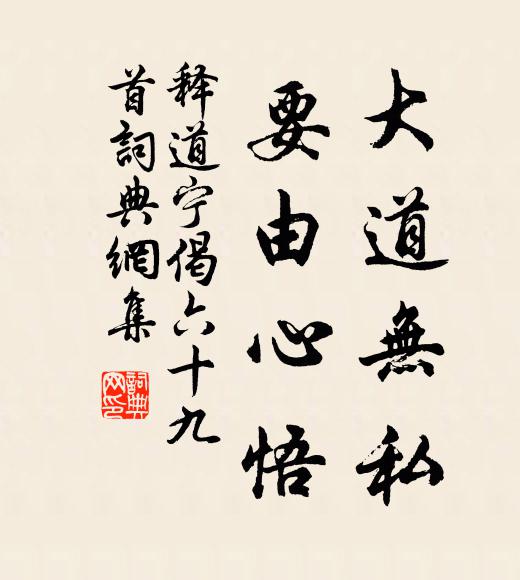 大道無私
要由心悟
释道宁偈六十九
首詞典網集
詞典
网印